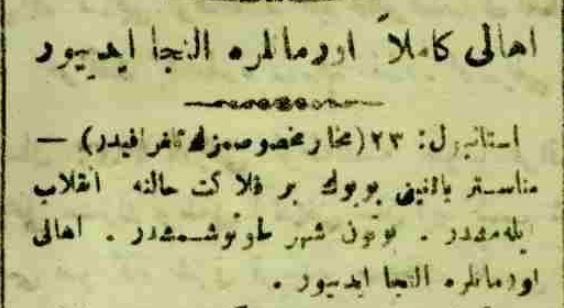 اهالی کاملاً اورمانلره التجا ایدییور
استانبول: ۲۳ (مخابر مخصوصمزك تلغرافیدر) —
مناستر یانغینی بویوك بر فلاکت حالنه انقلاب
ایله‌مشدر . بوتون شهر طوتوشمشدر . اهالی
اورمانلره التجا ایدییور .